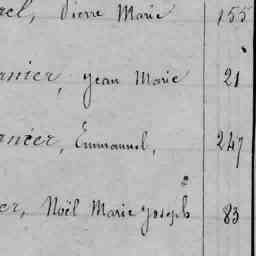 rel, Pierre Marie 155
anier, Jean Marie 21
anier, Emmanuel, 247
er, Noël Marie Joseph 83